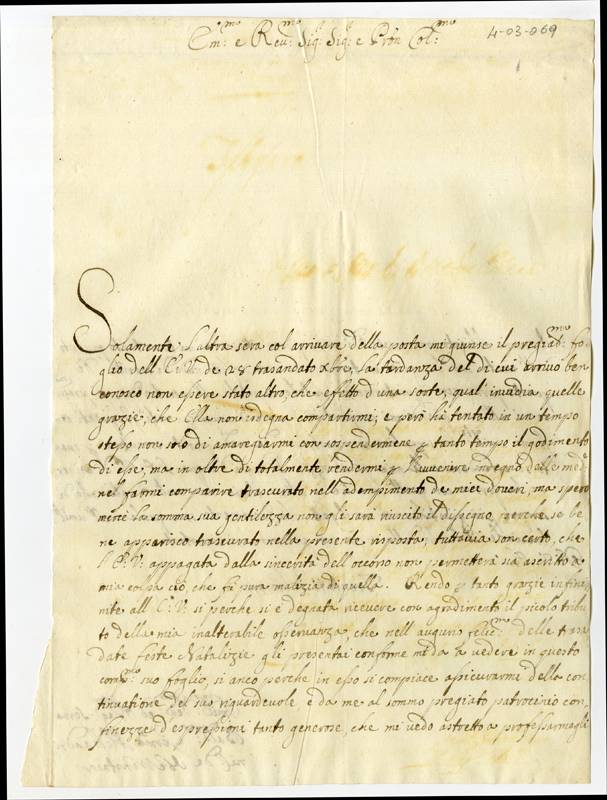 Em:mo e Reu:mo Sig:r Sig:r e Pron Col:mo
4-03-069
Solamente l'altra sera col arrivare della posta mi giunse il pregiat:mo fo-
glio dell E:V: de 28 trasandato xbre, la tardanza del di cui arrivo ben
conosco non essere stato altro, che effetto d'una sorte, qual' inuidia quelle
grazie, che Ella non isdegna compartirmi, e però hà tentato in un tempo
stesso non solo di amaregiarmi con sospendermene p tanto tempo il godimento
di esse, ma in oltre di totalmente rendermi p l'auuenire indegno delle med:e
nel farmi comparire trascurato nell'adempimento de miei doueri, ma spero
mercè la somma sua gentilezza non gli sarà riuscito il disegno, perche se be-
ne apparisco trascurato nella presente risposta, tuttauia son certo, che
l'E:V: appagata dalla sincerità dell occorso non permetterà sia ascritto à
mia colpa ciò, che fù pura malizia di quella. Rendo p tanto grazie infini-
nite all E:V: si perche si è degnata riceuere con agradimento il picolo tribu-
to della mia inalterabile osseruanza, che nell' augurio felic:mo delle trasan-
date feste Natalizie gli presentai conforme mi da à vedere in questo
suo foglio, si anco perche in esso si compiace assicurarme della con-
tinuatione del suo riguardeuole, e da me al sommo pregiato patrocinio con
finezze d'espressioni tanto generose, che mi vedo astretto à professarmegli